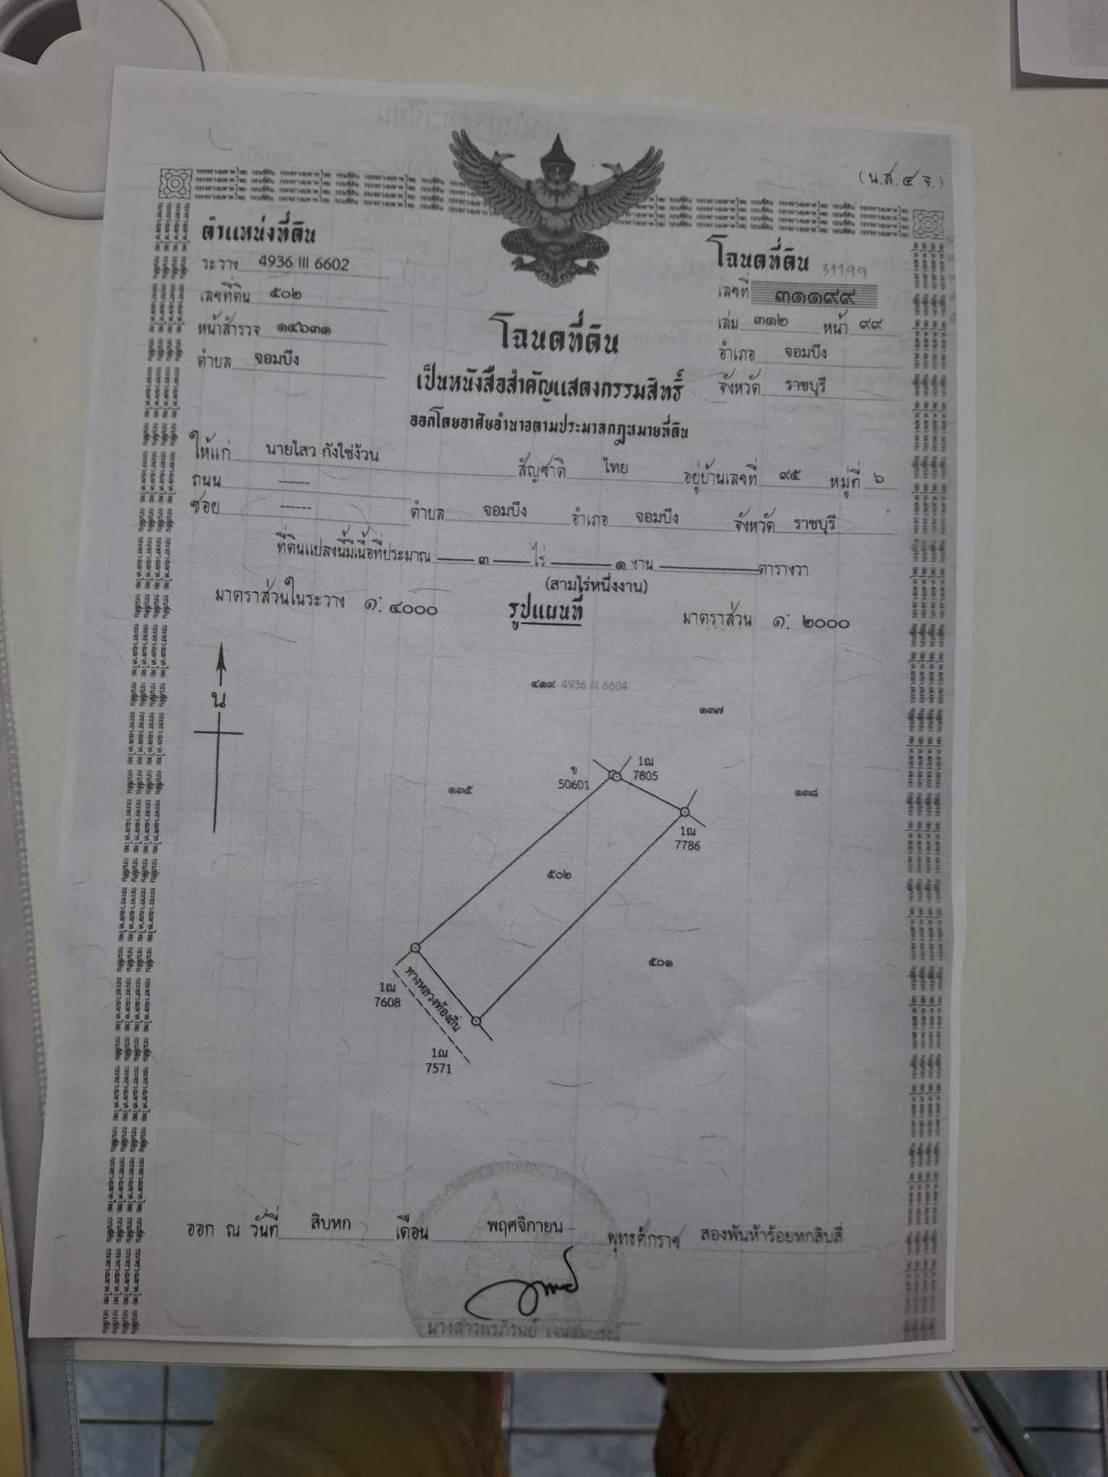 (น.ส. ๔ จ.)
ตำแหน่งที่ดิน
ระวาง 4936 III 6602
เลขที่ดิน ๕๐๒
หน้าสำรวจ ๑๔๖๓๑
ตำบล จอมบึง
โฉนดที่ดิน 31199
เลขที่ ๓๑๑๙๙
เล่ม ๓๑๒ หน้า ๙๙
อำเภอ จอมบึง
จังหวัด ราชบุรี
โฉนดที่ดิน
เป็นหนังสือสำคัญแสดงกรรมสิทธิ์
ออกโดยอาศัยอำนาจตามประมวลกฎหมายที่ดิน
ให้แก่ นายไสว กังใช่ง้วน สัญชาติ ไทย อยู่บ้านเลขที่ ๙๕ หมู่ที่ ๖
ถนน
ซอย ตำบล จอมบึง อำเภอ จอมบึง จังหวัด ราชบุรี
ที่ดินแปลงนี้มีเนื้อที่ประมาณ ๓ ไร่ ๑ งาน ตารางวา
(สามไร่หนึ่งงาน)
มาตราส่วนในระวาง ๑: ๔๐๐๐ รูปแผนที่ มาตราส่วน ๑: ๒๐๐๐
น
๔๑๙ 4936 III 6604
๑๓๗
ข
50601
1ณ
7805
๑๓๕
๑๓๘
1ณ
7786
๕๐๒
๕๐๑
1ณ
7608
ทางหลวงท้องถิ่น
1ณ
7571
ออก ณ วันที่ สิบหก เดือน พฤศจิกายน พุทธศักราช สองพันห้าร้อยหกสิบสี่